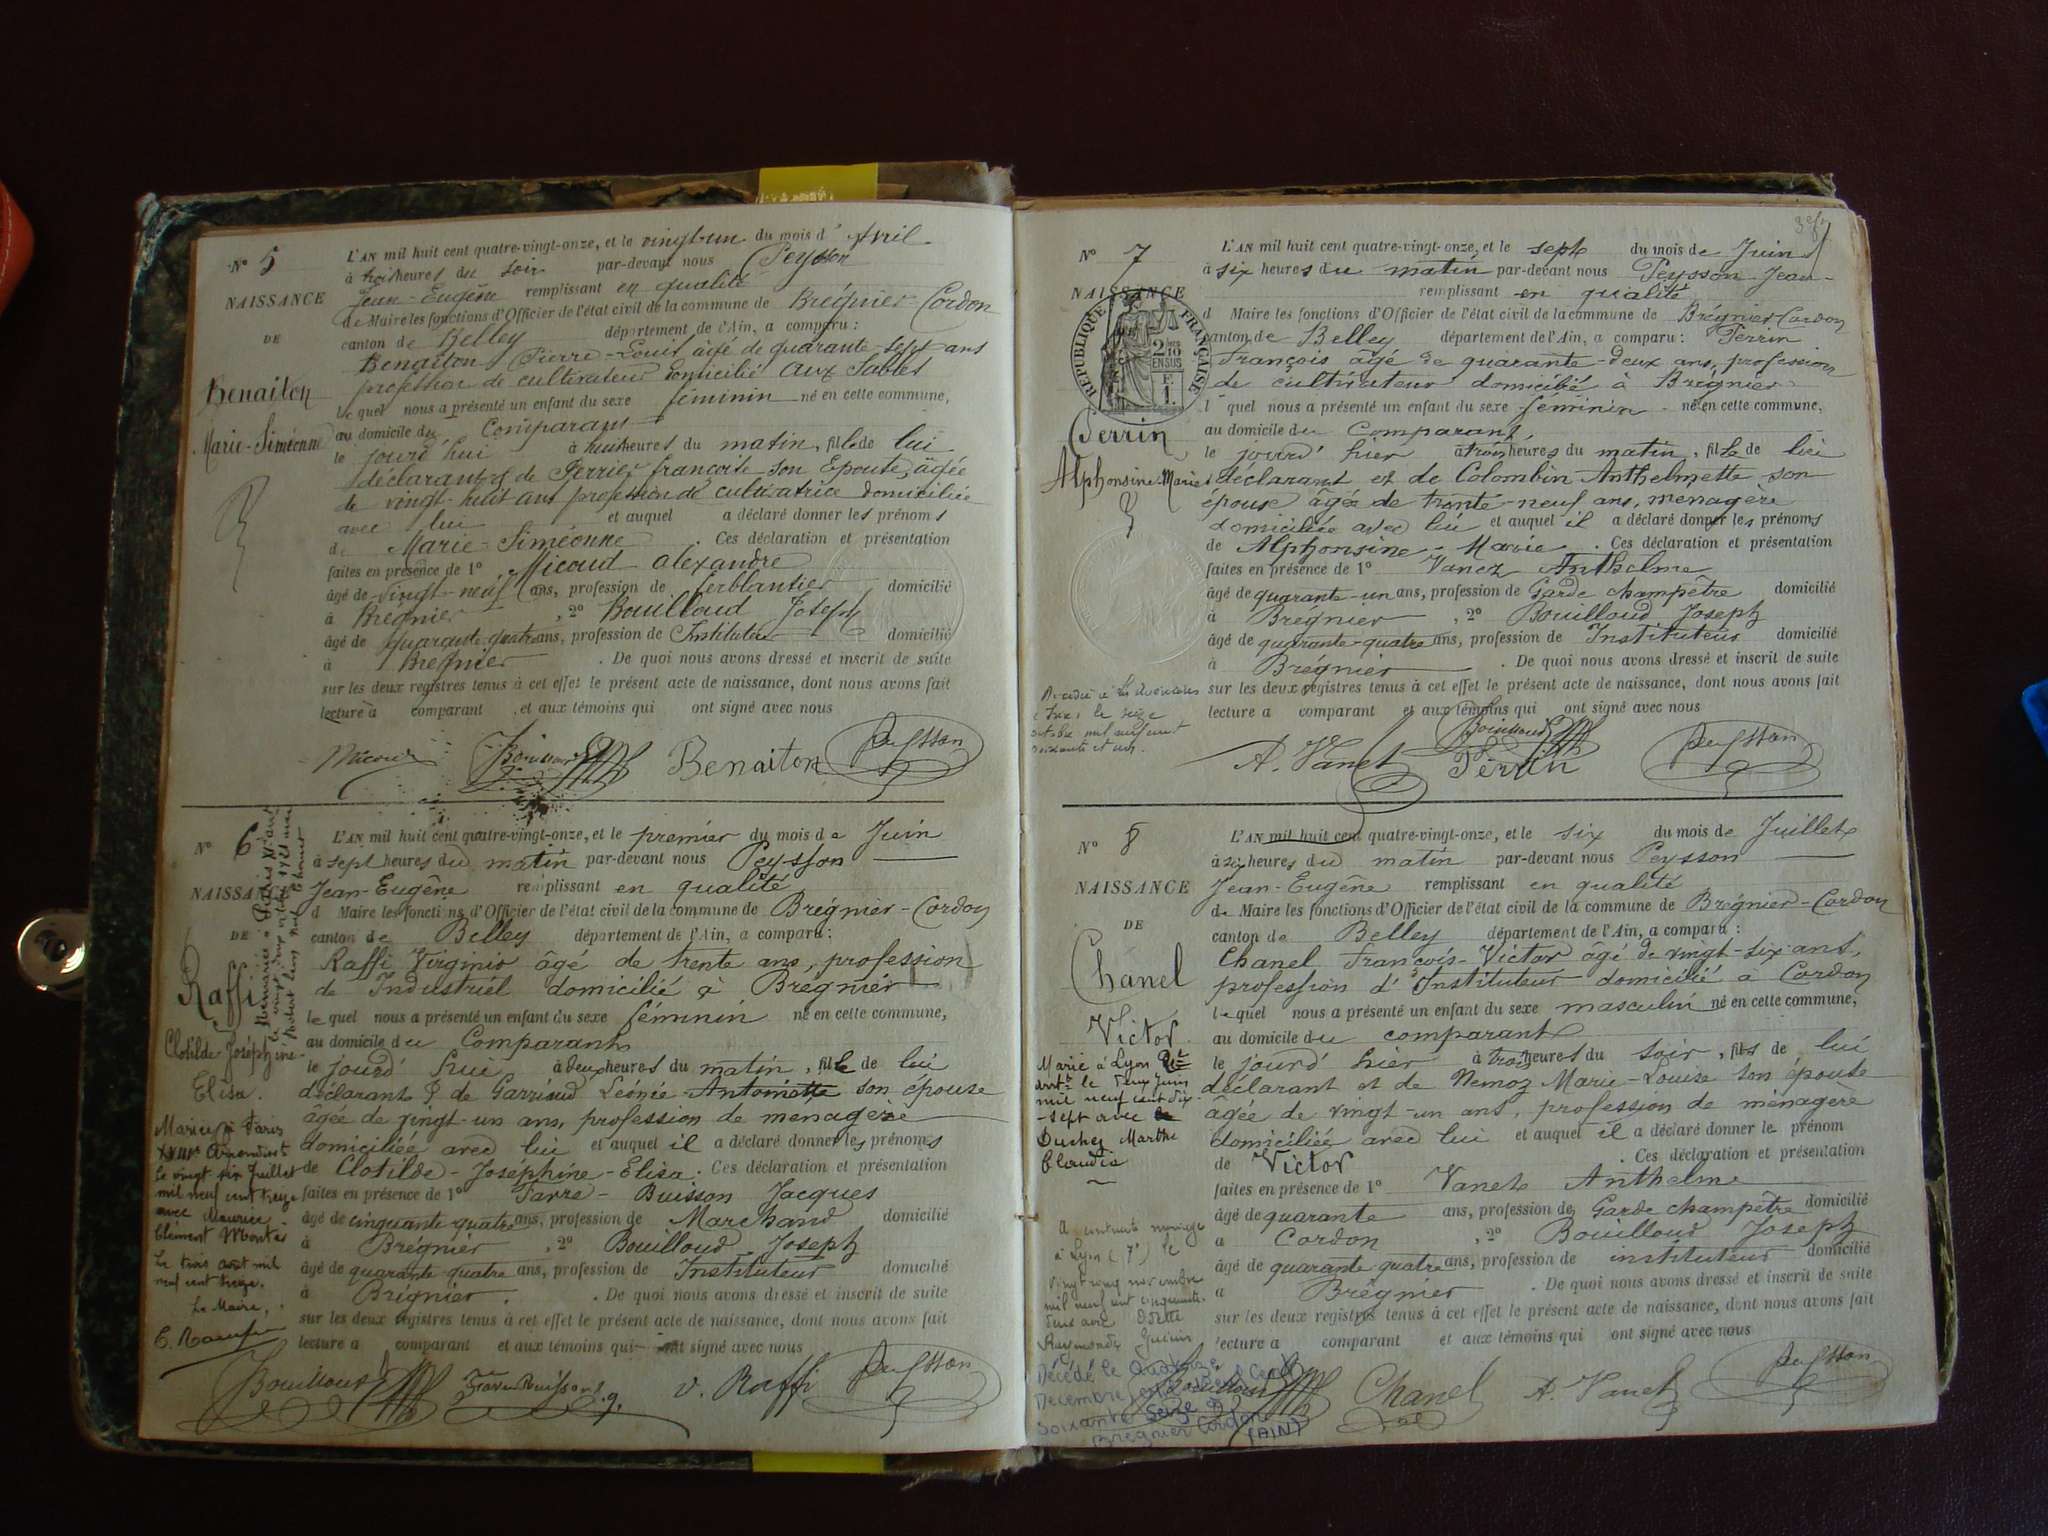 N° 5
L'AN mil huit cent quatre-vingt-onze, et le vingt-un du mois d' Avril
à trois heures du soir par-devant nous Peysson
NAISSANCE
Jean-Eugène remplissant en qualité
de Maire les fonctions d'Officier de l'état civil de la commune de Brégnier-Cordon
DE
canton de Belley département de l'Ain, a comparu :
Benaiton Pierre-Louis âgé de quarante-sept ans
profession de cultivateur domicilié aux Sables
Benaiton
lequel nous a présenté un enfant du sexe féminin né en cette commune,
au domicile du Comparant
Marie-Siméonne
le jourd'hui à huit heures du matin, fille de lui
déclarant & de Perrier françoise son Epouse, âgée
de vingt-huit ans profession de cultivatrice domiciliée
avec lui et auquel a déclaré donner les prénoms
de Marie-Siméonne. Ces déclaration et présentation
faites en présence de 1° Micoud alexandre
âgé de vingt-neuf ans, profession de ferblantier domicilié
à Brégnier, 2° Bouilloud Joseph
âgé de quarante-quatre ans, profession de Instituteur domicilié
à Brégnier. De quoi nous avons dressé et inscrit de suite
sur les deux registres tenus à cet effet le présent acte de naissance, dont nous avons fait
lecture à comparant et aux témoins qui ont signé avec nous
Micoud Bouilloud Benaiton Peysson
N° 6
L'AN mil huit cent quatre-vingt-onze, et le premier du mois de Juin
à sept heures du matin par-devant nous Peysson
NAISSANCE
Jean-Eugène remplissant en qualité
d Maire les fonctions d'Officier de l'état civil de la commune de Brégnier-Cordon
DE
canton de Belley département de l'Ain, a comparu :
Raffi Virginio âgé de trente ans, profession
de Industriel domicilié à Brégnier
Raffi
lequel nous a présenté un enfant du sexe féminin né en cette commune,
au domicile du Comparant
Clotilde Joséphine
Elisa.
le jourd'hui à deux heures du matin, fille de lui
déclarant & de Garriaud Léonie-Antoinette son épouse
âgée de vingt-un ans, profession de menagère
domiciliée avec lui et auquel il a déclaré donner les prénoms
de Clotilde-Josephine-Elisa. Ces déclaration et présentation
faites en présence de 1° Favre-Buisson Jacques
âgé de cinquante-quatre ans, profession de Marchand domicilié
à Brégnier, 2° Bouilloud Joseph
âgé de quarante-quatre ans, profession de Instituteur domicilié
à Brégnier. De quoi nous avons dressé et inscrit de suite
sur les deux registres tenus à cet effet le présent acte de naissance, dont nous avons fait
lecture a comparant et aux témoins qui ont signé avec nous
Mariée à Paris
XVIIIe Arrondisst
le vingt six Juillet
mil neuf cent treize
avec Maurice
Clément
Le trois août mil
neuf cent treize.
Le Maire,
Remariée à Paris
Bouilloud Favre Buisson v. Raffi Peysson
N° 7
L'AN mil huit cent quatre-vingt-onze, et le sept du mois de Juin
à six heures du matin par-devant nous Peysson Jean-
NAISSANCE
remplissant en qualité
d Maire les fonctions d'Officier de l'état civil de la commune de Brégnier-Cordon
canton de Belley département de l'Ain, a comparu : Perrin
françois âgé de quarante-deux ans, profession
de cultivateur domicilié à Brégnier
RÉPUBLIQUE FRANÇAISE
2/10 EN SUS
F. 1.
l quel nous a présenté un enfant du sexe féminin né en cette commune,
Perrin
au domicile du Comparant
le jourd'hier à trois heures du matin, fille de lui
Alphonsine-Marie
déclarant et de Colombin Anthelmette son
épouse âgée de trente-neuf ans, menagère
domiciliée avec lui et auquel il a déclaré donner les prénoms
de Alphonsine-Marie. Ces déclaration et présentation
faites en présence de 1° Vanez Anthelme
âgé de quarante-un ans, profession de Garde champêtre domicilié
à Brégnier, 2° Bouilloud Joseph
âgé de quarante-quatre ans, profession de Instituteur domicilié
à Brégnier. De quoi nous avons dressé et inscrit de suite
sur les deux registres tenus à cet effet le présent acte de naissance, dont nous avons fait
lecture a comparant et aux témoins qui ont signé avec nous
le seize
octobre mil neuf cent
soixante et un.
A. Vanet Bouilloud Perrin Peysson
N° 8
L'AN mil huit cent quatre-vingt-onze, et le six du mois de Juillet
à six heures du matin par-devant nous Peysson
NAISSANCE
Jean-Eugène remplissant en qualité
de Maire les fonctions d'Officier de l'état civil de la commune de Brégnier-Cordon
DE
canton de Belley département de l'Ain, a comparu :
Chanel françois-Victor âgé de vingt-six ans,
profession d'Instituteur domicilié à Cordon
Chanel
lequel nous a présenté un enfant du sexe masculin né en cette commune,
au domicile du comparant
Victor
le jourd'hier à trois heures du soir, fils de lui
déclarant et de Nemoz Marie-Louise son épouse
âgée de vingt-un ans, profession de ménagère
domiciliée avec lui et auquel il a déclaré donner le prénom
de Victor. Ces déclaration et présentation
faites en présence de 1° Vanet Anthelme
âgé de quarante ans, profession de Garde champêtre domicilié
a Cordon, 2° Bouilloud Joseph
âgé de quarante quatre ans, profession de instituteur domicilié
a Brégnier. De quoi nous avons dressé et inscrit de suite
sur les deux registres tenus à cet effet le présent acte de naissance, dont nous avons fait
lecture a comparant et aux témoins qui ont signé avec nous
Marié à Lyon
le deux Juin
mil neuf cent dix-
-sept avec
Duchez Marthe
Claudia
A contracté mariage
à Lyon (7e) le
vingt cinq novembre
mil neuf cent cinquante-
deux avec Odette
Raymonde
Décédé le Quatorze
Decembre Cent
Soixante Seize à
Brégnier Cordon
(AIN)
Bouilloud Chanel A. Vanet Peysson